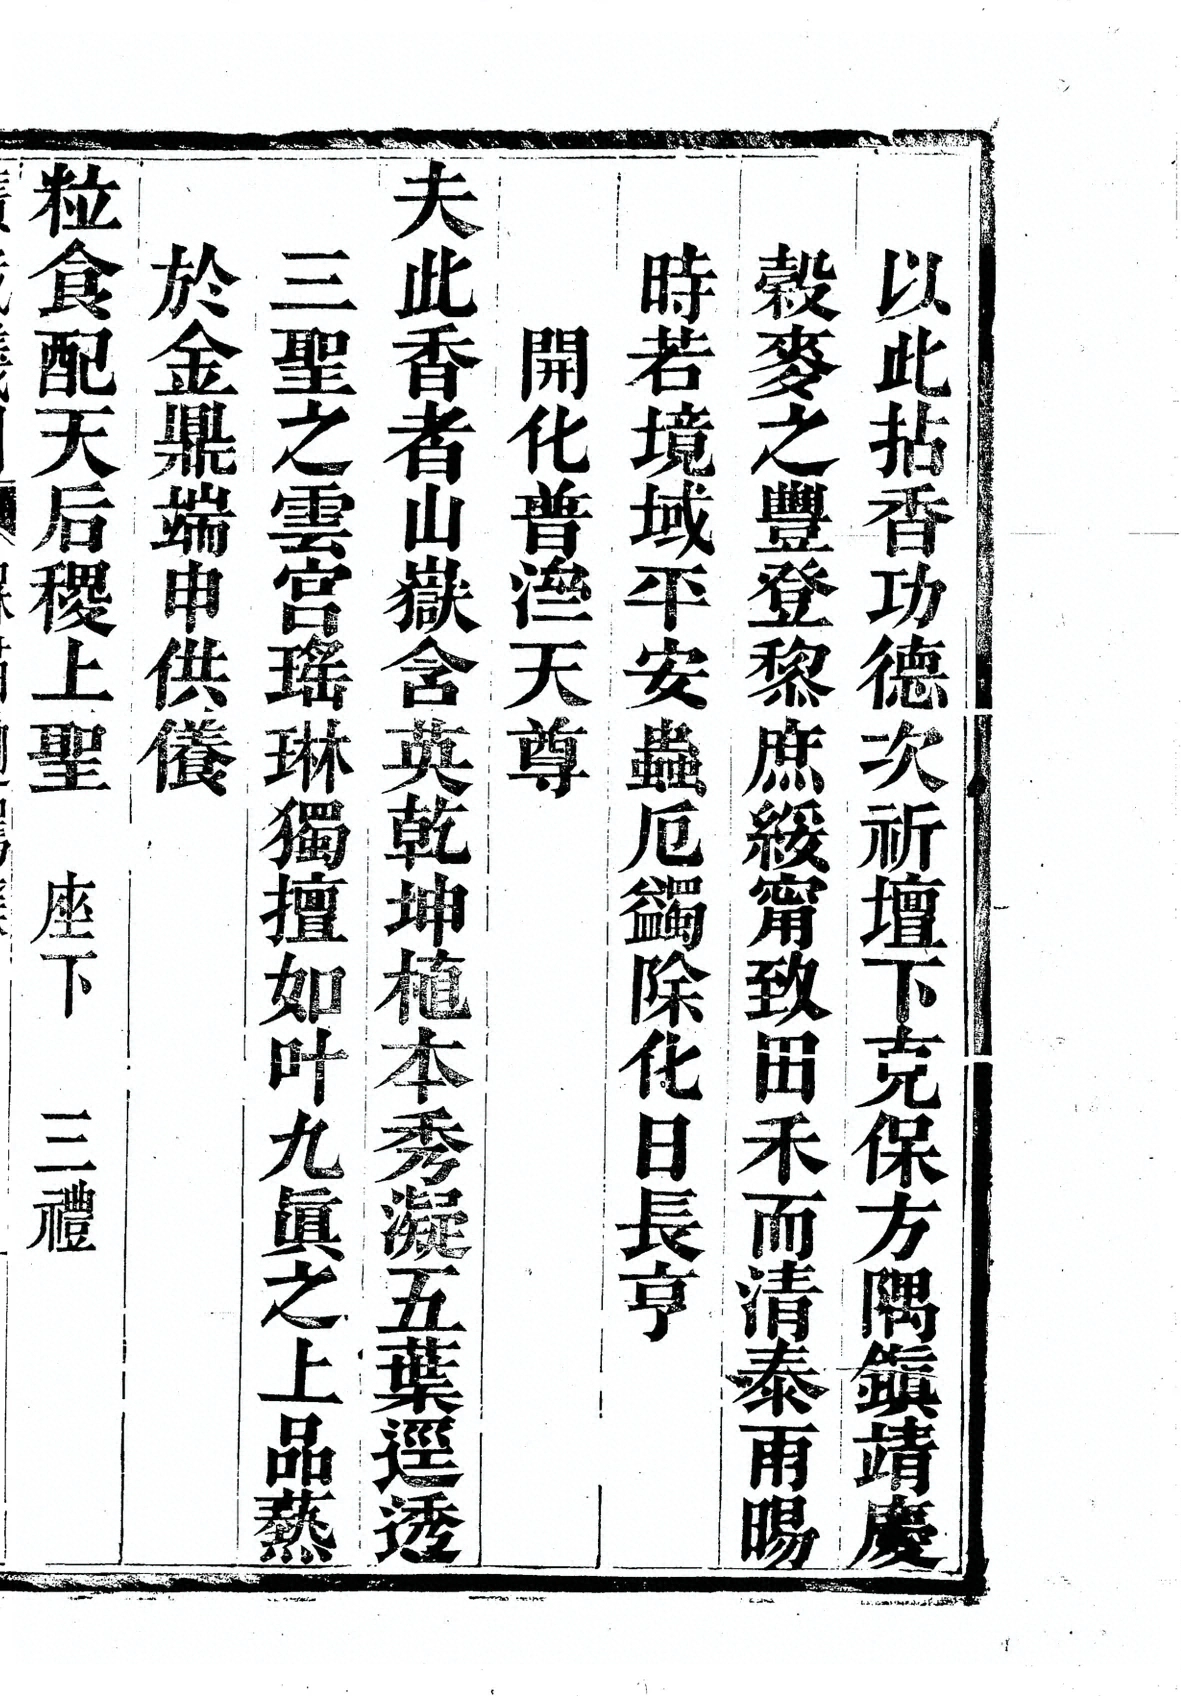 以此拈香功德次祈壇下克保方隅鎮靖慶
穀麥之豐登黎庶綏甯致田禾而清泰雨暘
時若境域平安蟲厄蠲除化日長亨
開化普濟天尊
夫此香者山嶽含英乾坤植本秀凝五葉逕透
三聖之雲宮瑤琳獨擅如叶九眞之上品爇
於金鼎端申供養
粒食配天后稷上聖 座下 三禮